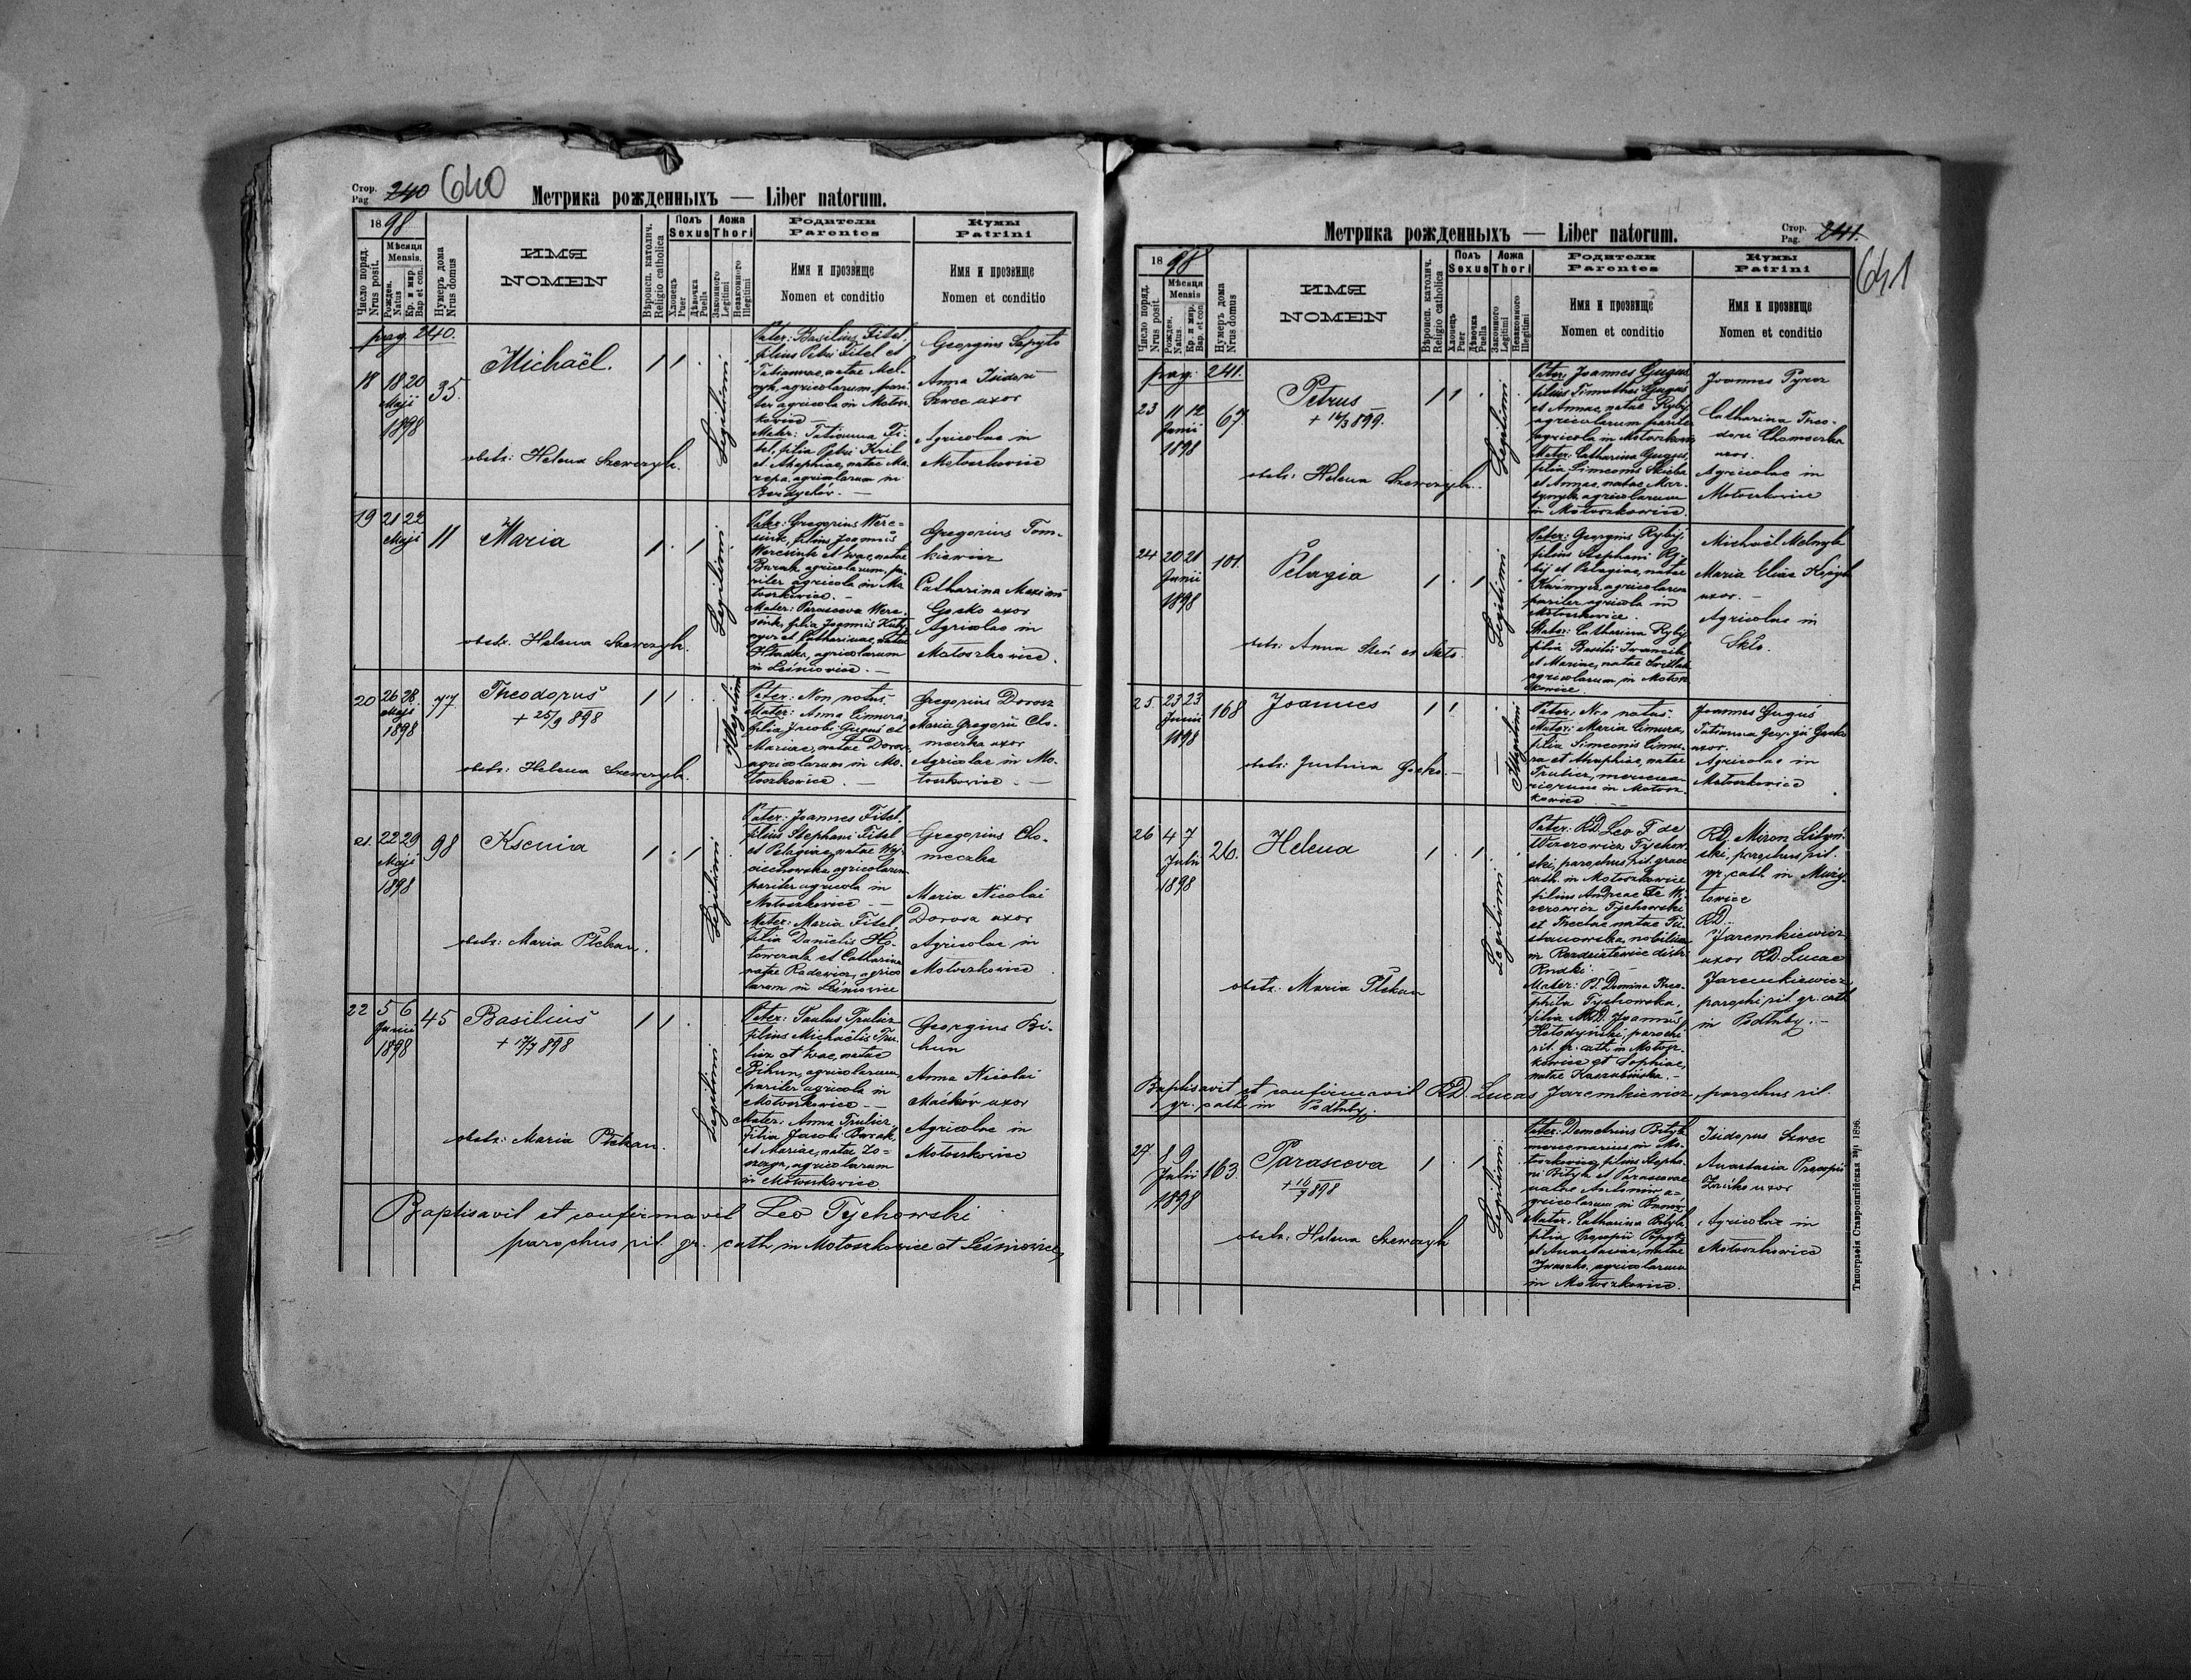 Стор.
Pag 240 640
Метрика рожденныхъ — Liber natorum.
1898
Число поряд.
Nrus posit.
Мѣсяця
Mensis.
Рожден.
Natus
Кр. и мир.
Bap et con.
Нумеръ дома
Nrus domus
ИМЯ
NOMEN
Вѣроисп. католич.
Religio catholica
Полъ
Sexus
Хлопець
Puer
Дѣвочка
Puella
Ложа
Thori
Законного
Legitimi
Незаконного
Illegitimi
Родители
Parentes
Имя и прозвище
Nomen et conditio
Кумы
Patrini
Имя и прозвище
Nomen et conditio
pag 240.
18 18 20 35.
Maji
1898
Michaël.
obstr: Helena Szewczyk.
Legitimi
Pater: Basilius Fitel,
filius Petri Fitel et
Tatiannae, natae Mel-
nyk, agricolarum, pari-
ter agricola in Motosz-
kowice —
Mater: Tatianna Fi-
tel, filia Petri Kril
et Ahaphiae, natae Ma-
zepa, agricolarum in
Berdychów. —
Georgius Sapyto
Anna Isidori
Szwec uxor
Agricolae in
Motoszkowice
19 21 22 11
Maji
Maria
obstr. Helena Szewczyk.
Legitimi
Pater: Gregorius Were-
siuk, filius Joannis
Weresiuk et Evae, natae
Burak agricolarum, pa-
riter agricola in Mo-
toszkowice. —
Mater: Parasceva Were-
siuk, filia Joannis
et Catharinae, natae
Hladka, agricolarum
in Leśniowice. —
Gregorius Tom-
kiewicz
Catharina Maximi
Gocko uxor
Agricolae in
Motoszkowice.
20 26 28 77
Maji
1898
Theodorus
+ 25/9 898
obstr: Helena Szewczyk.
Illegitimi
Pater: Non notus.
Mater: Anna Cimura,
filia Jacobi Guguś et
Mariae, natae Dorosz
agricolarum in Mo-
toszkowice. —
Gregorius Dorosz
Maria Gregorii Cho-
meczka uxor
Agricolae in Mo-
toszkowice. —
21. 22 29 98
Maji
1898
Ksenia
obstr: Maria Płekan.
Legitimi
Pater: Joannes Fitel,
filius Stephani Fitel
et Pelagiae, natae Woj-
ciechowska agricolarum
pariter agricola in
Motoszkowice. —
Mater: Maria Fitel,
filia Danielis Ho-
et Catharinae
natae Radewicz, agrico-
larum in Leśniowice
Gregorius Cho-
meczka
Maria Nicolai
Dorosz uxor
Agricolae in
Motoszkowice
22 5 6 45
Junii
1898
Basilius
+ 17/7 898
obstr: Maria Płekan.
Legitimi
Pater: Paulus Trulicz
filius Michaëlis Tru-
licz et Evae, natae
Bihun, agricolarum,
pariter agricola in
Motoszkowice —
Mater: Anna Trulicz,
filia Jacobi Burak,
et Mariae, natae
agricolarum
in Motoszkowice.
Georgius Bi-
hun
Anna Nicolai
Maćków uxor
Agricolae in
Motoszkowice
Baptisavit et confirmavit Leo Tychowski
parochus rit. gr. cath in Motoszkowice et Leśniowice
Метрика рожденныхъ — Liber natorum.
Стор.
Pag. 241.
641
1898
Число поряд.
Nrus posit.
Мѣсяця
Mensis
Рожден.
Natus.
Кр. и мир.
Bap. et con
Нумеръ дома
Nrus domus
ИМЯ
NOMEN
Вѣроисп. католич.
Religio catholica
Полъ
Sexus
Хлопець
Puer
Дѣвочка
Puella
Ложа
Thori
Законного
Legitimi
Незаконного
Illegitimi
Родители
Parentes
Имя и прозвище
Nomen et conditio
Кумы
Patrini
Имя и прозвище
Nomen et conditio
pag: 241.
23 11 12 67
Junii
1898
Petrus
+ 16/3 899.
obstr: Helena Szewczyk.
Legitimi
Pater: Joannes Guguś,
filius Timothei Guguś
et Annae, natae Rybij
agricolarum pariter
agricola in Motoszkow.
Mater: Catharina Guguś,
filia Simeonis Skiba
et Annae, natae Mar-
tyniuk agricolarum
in Motoszkowice.
Joannes Pyroz
Catharina Theo-
dori Chomeczka
uxor.
Agricolae in
Motoszkowice
24 20 21 101.
Junii
1898
Pelagia
obstr: Anna
Legitimi
Pater: Georgius Rybij,
filius Stephani Ry-
bij et Pelagiae, natae
agricolarum
pariter agricola in
Motoszkowice.
Mater: Catharina Rybij
filia Basilii Iwancik
et Mariae, natae Switlak
agricolarum in Motosz-
kowice.
Michaël Melnyk
Maria Eliae
uxor. —
Agricolae in
Szkło.
25. 23 23 168
Junii
1898
Joannes
obstr: Justina Gocko. —
Illegitimi
Pater: Non notus.
Mater: Maria Cimura,
filia Simeonis Cimu-
ra et Ahaphiae, natae
Trulicz, mercena-
riorum in Motosz-
kowice —
Joannes Guguś
Tatianna Georgii Gocko
uxor.
Agricolae in
Motoszkowice
26 4 7 26.
Julii
1898
Helena
obstr. Maria Płekan
Legitimi
Pater: RD. Leo F. de
Wizerowicz Tychow-
ski, parochus rit. graec
cath. in Motoszkowice
filius Andreae de Wi-
zerowicz Tychowski
et Theclae natae Tu-
stanowska, nobilium
in distr.
Rudki.
Mater: P. Domina Theo-
phila Tychowska,
filia RD. Joannis
Hołodyński, parochi
rit. gr. cath. in Motosz-
kowice et Sophiae,
natae Kaszubińska. —
RD. Miron Lityń-
ski, parochus rit.
gr. cath in Muży-
łowice
RD.
Jaremkiewicz
uxor RD. Lucae
Jaremkiewicz
parochi rit. gr. cath
in Podłuby. —
Baptisavit et confirmavit RD. Lucas Jaremkiewicz, parochus rit.
gr. cath in Podłuby.
27 8 9 163.
Julii
1898
Parasceva
+ 10/7 898
obstr. Helena Szewczyk
Legitimi
Pater: Demetrius Bityk
mercenarius in Mo-
toszkowice, filius Stepha-
ni Bityk et Parascevae
natae Antoniw, a-
gricolarum in
Mater: Catharina Bityk
filia Procopii
et Anastasiae, natae
Iwaszko, agricolarum
in Motoszkowice.
Isidorus Szwec
Anastasia Procopii
uxor
Agricolae in
Motoszkowice
Типографія Ставропигійская 1896.